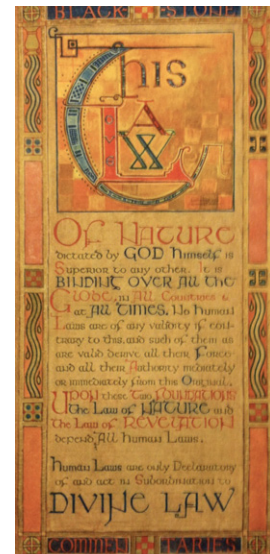 BLACK STONE
This
LAW
Of Nature
dictated by GOD himself is
Superior to any other. It is
BINDING OVER ALL the
GLOBE, in ALL Countries &
at ALL TIMES. No Human
Laws are of any validity if con-
trary to this, and such of them as
are valid derive all their Force
and all their Authority mediately
or immediately from this Original.
Upon these two FOUNDATIONS
the Law of NATURE and
the Law of REVELATION
depend All Human Laws.
Human Laws are only Declaratory
of and act in Subordination to
DIVINE LAW
COMMEN TARIES